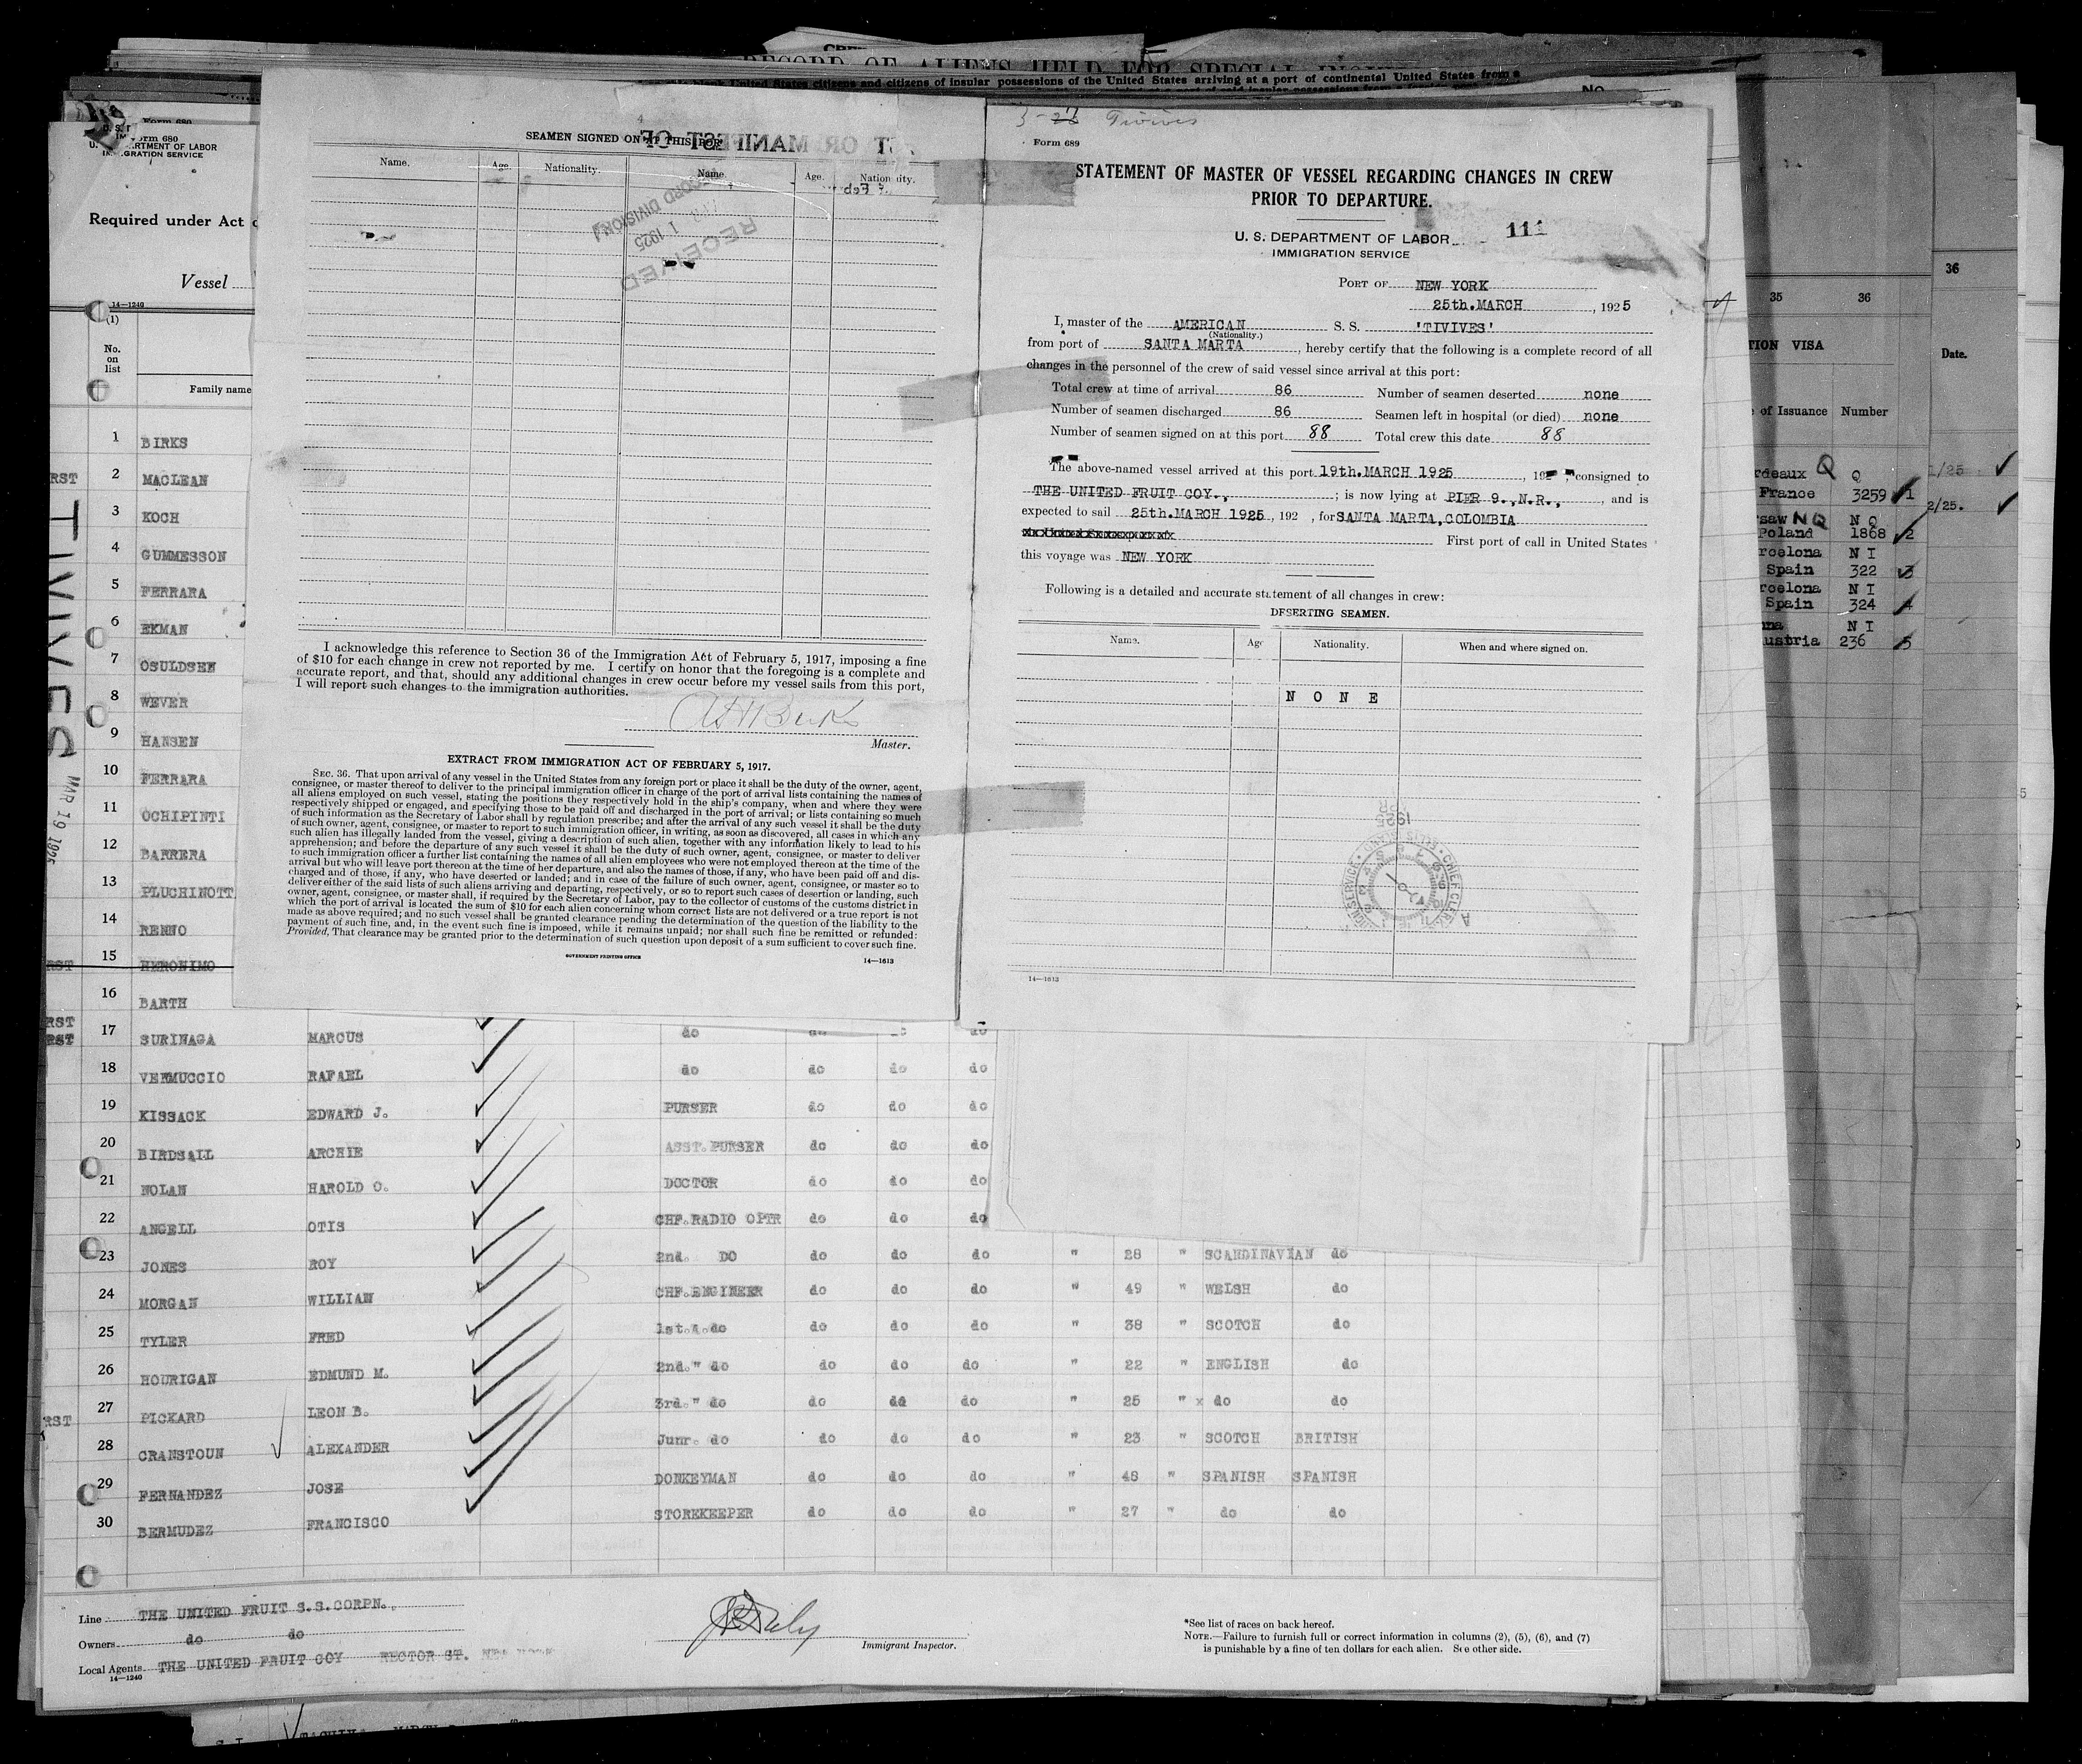 RECORD OF ALIENS HELD FOR SPECIAL
United States citizens and citizens of insular possessions of the United States arriving at a port of continental United States from a
No.
Form 680
IMMIGRATION SERVICE
Required under Act
Vessel
14—1240
(1)
No. on list
Family name
TIVIVES
MAR 19 1925
SEAMEN SIGNED ON AT THIS PORT
Name. Age. Nationality. Name. Age. Nationality.
RECEIVED
1 1925
RECORD DIVISION
I acknowledge this reference to Section 36 of the Immigration Act of February 5, 1917, imposing a fine
of $10 for each change in crew not reported by me. I certify on honor that the foregoing is a complete and
accurate report, and that, should any additional changes in crew occur before my vessel sails from this port,
I will report such changes to the immigration authorities.
Master.
EXTRACT FROM IMMIGRATION ACT OF FEBRUARY 5, 1917.
SEC. 36. That upon arrival of any vessel in the United States from any foreign port or place it shall be the duty of the owner, agent,
consignee, or master thereof to deliver to the principal immigration officer in charge of the port of arrival lists containing the names of
all aliens employed on such vessel, stating the positions they respectively hold in the ship's company, when and where they were
respectively shipped or engaged, and specifying those to be paid off and discharged in the port of arrival; or lists containing so much
of such information as the Secretary of Labor shall by regulation prescribe; and after the arrival of any such vessel it shall be the duty
of such owner, agent, consignee, or master to report to such immigration officer, in writing, as soon as discovered, all cases in which any
such alien has illegally landed from the vessel, giving a description of such alien, together with any information likely to lead to his
apprehension; and before the departure of any such vessel it shall be the duty of such owner, agent, consignee, or master to deliver
to such immigration officer a further list containing the names of all alien employees who were not employed thereon at the time of the
arrival but who will leave port thereon at the time of her departure, and also the names of those, if any, who have been paid off and dis-
charged and of those, if any, who have deserted or landed; and in case of the failure of such owner, agent, consignee, or master so to
deliver either of the said lists of such aliens arriving and departing, respectively, or so to report such cases of desertion or landing, such
owner, agent, consignee, or master shall, if required by the Secretary of Labor, pay to the collector of customs of the customs district in
which the port of arrival is located the sum of $10 for each alien concerning whom correct lists are not delivered or a true report is not
made as above required; and no such vessel shall be granted clearance pending the determination of the question of the liability to the
payment of such fine, and, in the event such fine is imposed, while it remains unpaid; nor shall such fine be remitted or refunded:
Provided, That clearance may be granted prior to the determination of such question upon deposit of a sum sufficient to cover such fine.
GOVERNMENT PRINTING OFFICE 14—1613
Tivives
Form 689
STATEMENT OF MASTER OF VESSEL REGARDING CHANGES IN CREW
PRIOR TO DEPARTURE.
U. S. DEPARTMENT OF LABOR 111
IMMIGRATION SERVICE
PORT OF NEW YORK
25th.MARCH, 1925
I, master of the AMERICAN S. S. 'TIVIVES'
(Nationality.)
from port of SANTA MARTA, hereby certify that the following is a complete record of all
changes in the personnel of the crew of said vessel since arrival at this port:
Total crew at time of arrival 86 Number of seamen deserted none
Number of seamen discharged 86 Seamen left in hospital (or died) none
Number of seamen signed on at this port 88 Total crew this date 88
The above-named vessel arrived at this port 19th.MARCH 1925, 192 , consigned to
THE UNITED FRUIT COY., ; is now lying at PIER 9.,N.R., , and is
expected to sail 25th.MARCH 1925, 192 , for SANTA MARTA,COLOMBIA
First port of call in United States
this voyage was NEW YORK
Following is a detailed and accurate statement of all changes in crew:
DESERTING SEAMEN.
Name. Age Nationality. When and where signed on.
N O N E
14—1613
35 36 36
VISA Date.
of Issuance Number
Q Q 1/25
France 3259 1 2/25.
NQ N Q
Poland 1868 2
N I
Spain 322 3
N I
Spain 324 4
N I
236 5
1 BIRKS
2 MACLEAN
3 KOCH
4 GUMMESSON
5 FERRARA
6 EKMAN
7 OSULDSEN
8 WEVER
9 HANSEN
10 FERRARA
11 OCHIPINTI
12 BARRERA
13 PLUCHINOTT
14 RENNO
15 HERONIMO
16 BARTH
17 SURINAGA MARCUS do do do
18 VERMUCCIO RAFAEL do do do do
19 KISSACK EDWARD J. PURSER do do do
20 BIRDSALL ARCHIE ASST.PURSER do do do
21 NOLAN HAROLD O. DOCTOR do do do
22 ANGELL OTIS CHF.RADIO OPTR do do do
23 JONES ROY 2nd. DO do do do " 28 " SCANDINAVIAN do
24 MORGAN WILLIAM CHF.ENGINEER do do do " 49 " WELSH do
25 TYLER FRED 1st. do do do do " 38 " SCOTCH do
26 HOURIGAN EDMUND M. 2nd. " do do do do " 22 " ENGLISH do
27 PICKARD LEON B. 3rd. " do do do do " 25 " x do do
28 CRANSTOUN ALEXANDER Junr. do do do do " 23 " SCOTCH BRITISH
29 FERNANDEZ JOSE DONKEYMAN do do do " 48 " SPANISH SPANISH
30 BERMUDEZ FRANCISCO STOREKEEPER do do do " 27 " do do
Line THE UNITED FRUIT S.S.CORPN.
Owners do do
Local Agents THE UNITED FRUIT COY RECTOR ST. NEW YORK
14—1240
Immigrant Inspector.
*See list of races on back hereof.
NOTE.—Failure to furnish full or correct information in columns (2), (5), (6), and (7)
is punishable by a fine of ten dollars for each alien. See other side.